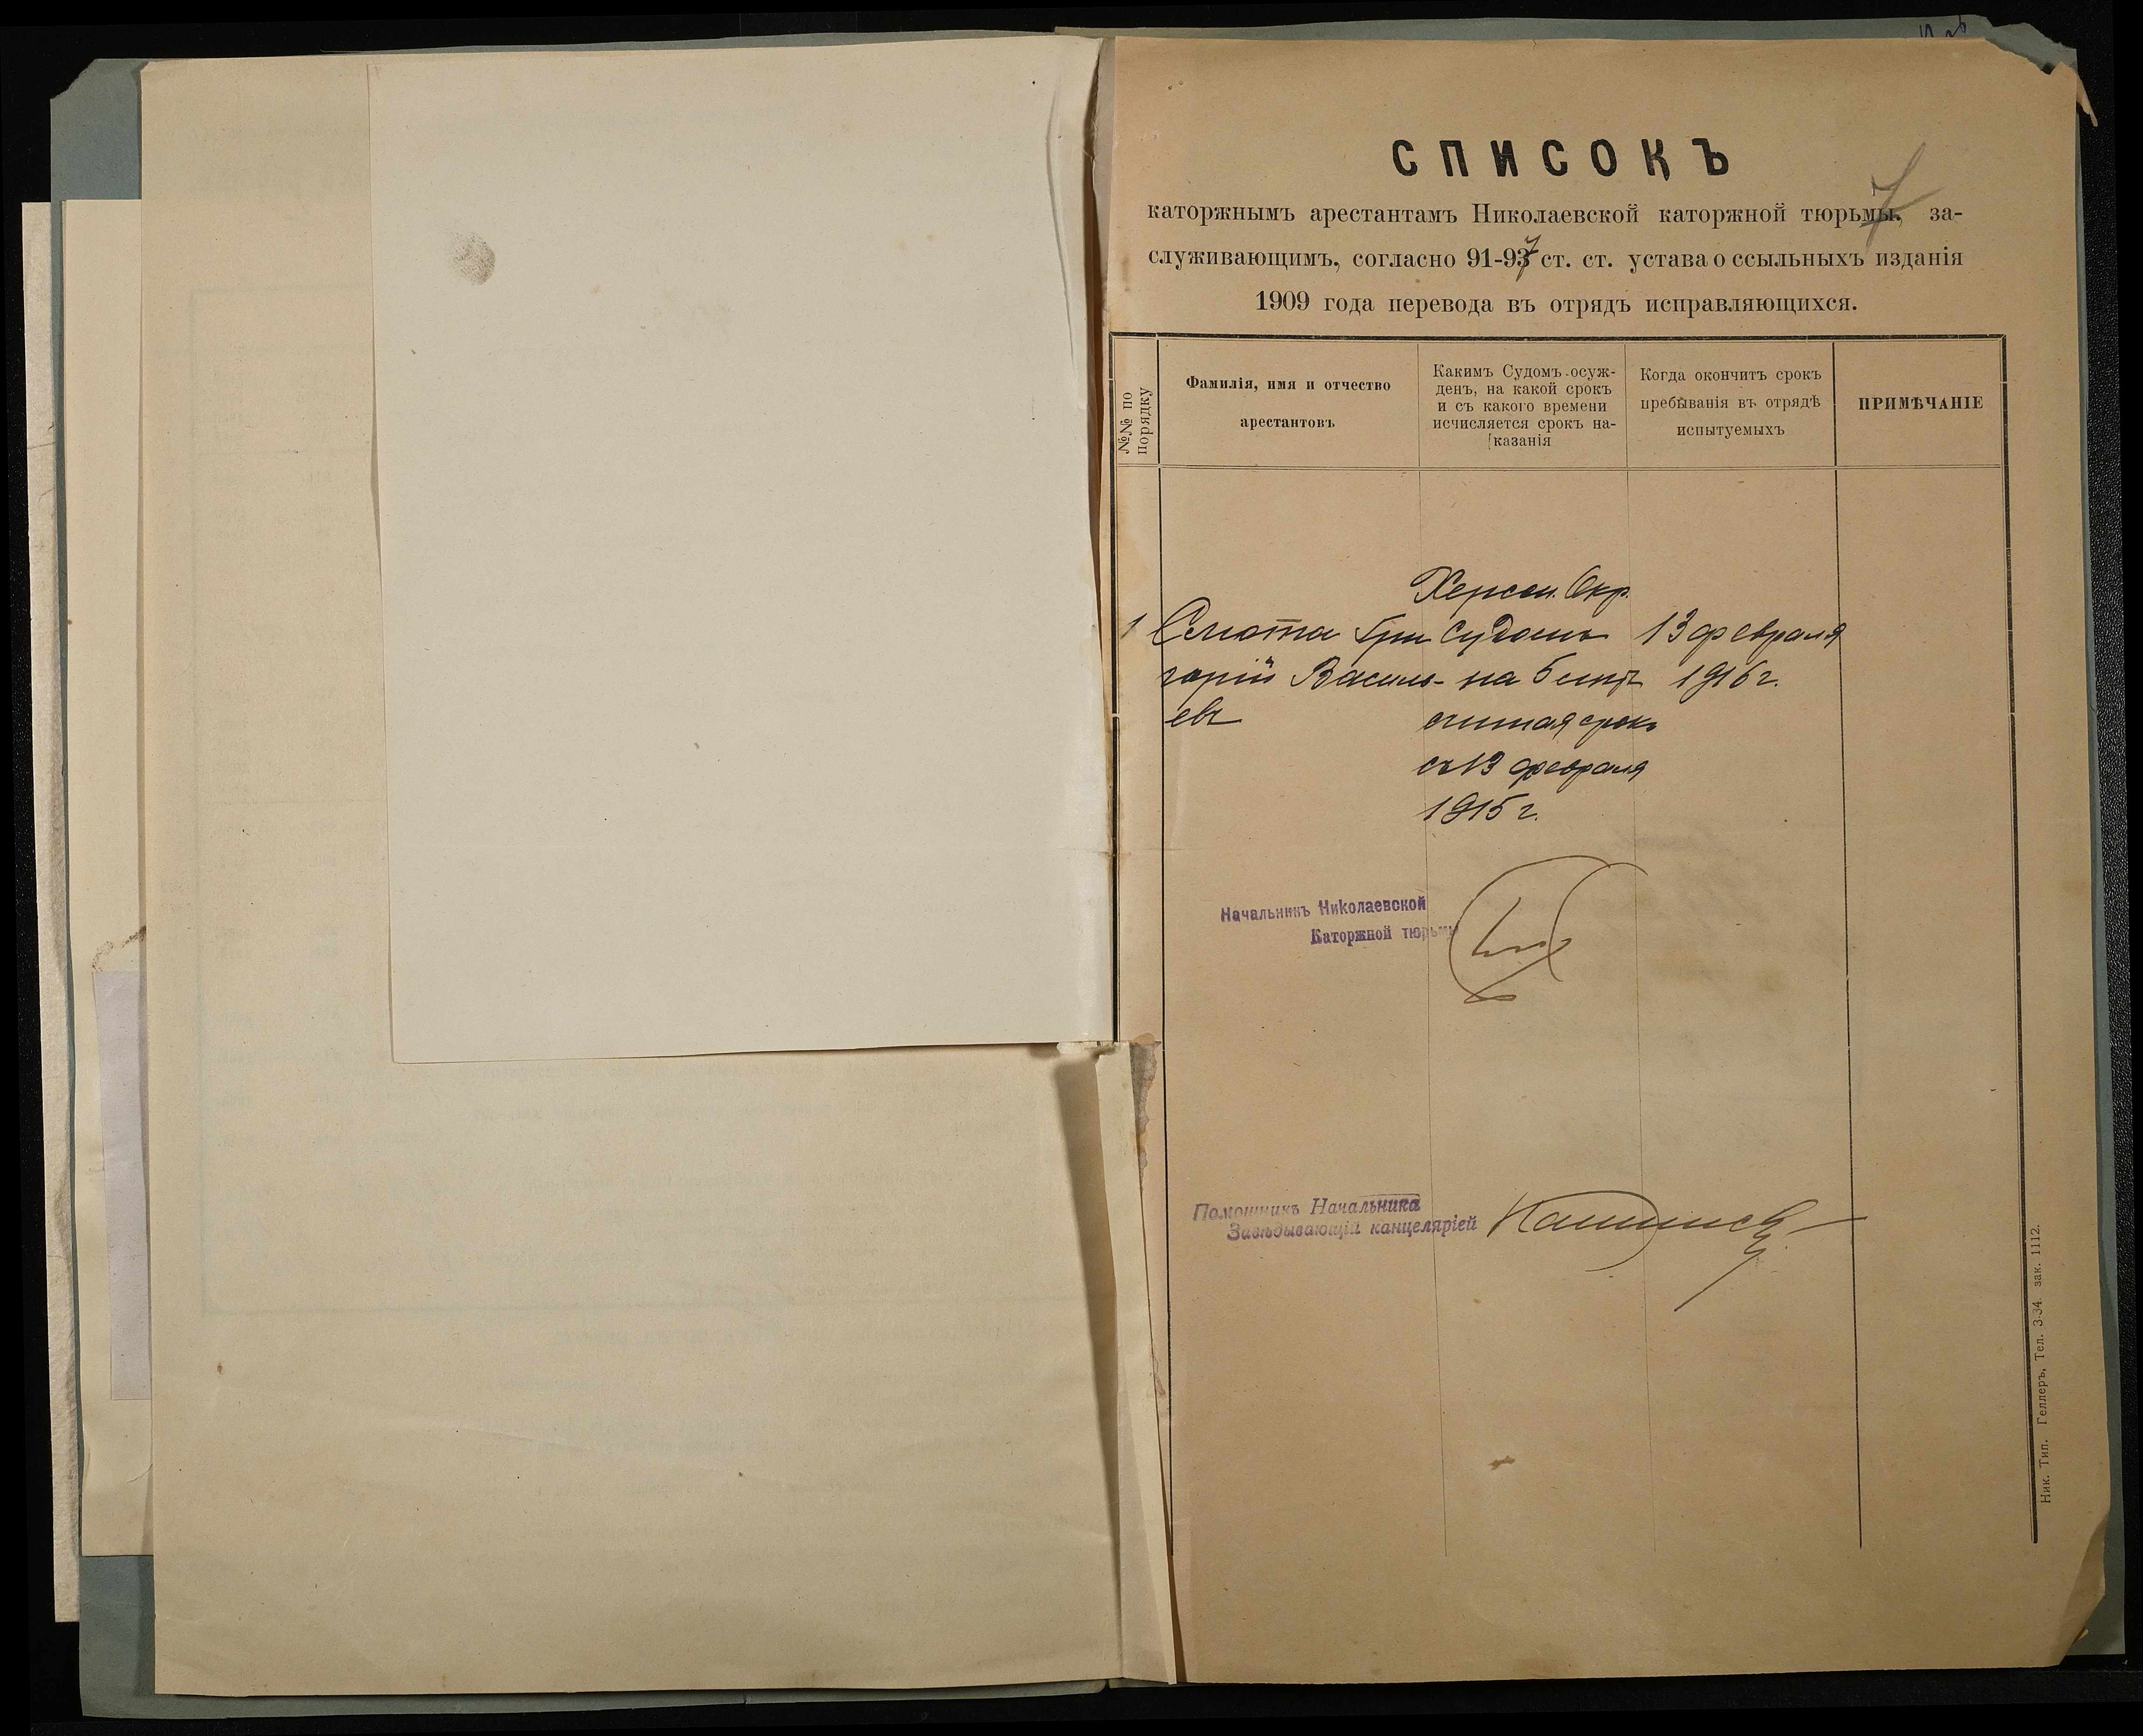 СПИСОКЪ
7
каторжнымъ арестантамъ Николаевской каторжной тюрьмы, за-
служивающимъ, согласно 91-97 ст. ст. устава о ссыльныхъ изданія
1909 года перевода въ отрядъ исправляющихся.
№№ по
порядку
Фамилія, имя и отчество
арестантовъ
Какимъ Судомъ осуж-
денъ, на какой срокъ
и съ какого времени
исчисляется срокъ на-
казанія
Когда окончитъ срокъ
пребыванія въ отрядѣ
испытуемыхъ
ПРИМѢЧАНІЕ
1
Смота Гри
горій Василь-
евъ
Херсон. Окр.
Судомъ
на 5 лѣтъ
считая срокъ
съ 13 февраля
1915 г.
13 февраля
1916 г.
Начальникъ Николаевской
Каторжной тюрьмы
Помощникъ Начальника
Завѣдывающій канцеляріей
Ник. Тип. Геллеръ, Тел. 3-34. зак. 1112.